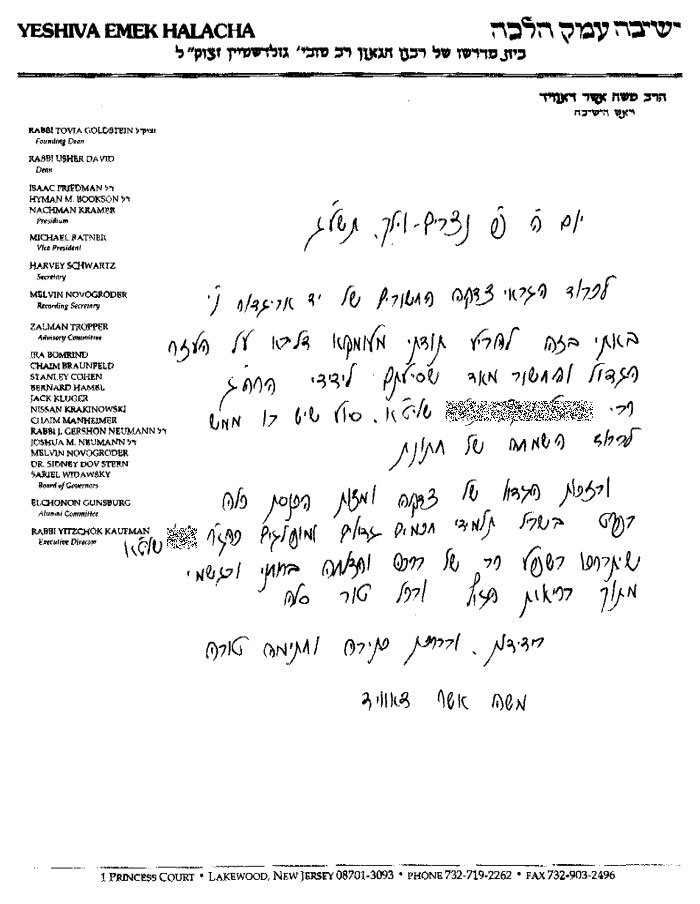 YESHIVA EMEK HALACHA
ישיבה עמק הלכה
בית מדרשו של רבנו הגאון רב טובי' גולדשטיין זצוק"ל
הרב משה אשר דאוויד
ראש הישיבה
RABBI TOVIA GOLDSTEIN זצוק"ל
Founding Dean
RABBI USHER DAVID
Dean
ISAAC FRIEDMAN ז"ל
HYMAN M. BOOKSON ז"ל
NACHMAN KRAMER
Presidium
MICHAEL RATNER
Vice President
HARVEY SCHWARTZ
Secretary
MELVIN NOVOGRODER
Recording Secretary
ZALMAN TROPPER
Advisory Committee
IRA BOMRIND
CHAIM BRAUNFELD
STANLEY COHEN
BERNARD HAMEL
JACK KLUGER
NISSAN KRAKINOWSKI
CHAIM MANHEIMER
RABBI J. GERSHON NEUMANN ז"ל
JOSHUA M. NEUMANN ז"ל
MELVIN NOVOGRODER
DR. SIDNEY DOV STERN
SARIEL WIDAWSKY
Board of Governors
ELCHONON GUNSBURG
Alumni Committee
RABBI YITZCHOK KAUFMAN
Executive Director
יום ה' פ' נצבים-וילך, תשע"ג
לכבוד הגבאי צדקה החשובים של יד אליעזר נ"י
באתי בזה להביע תודתי מעומקא דליבא על העזר
הגדול והחשוב מאד ששלחתם לידידי הרה"ג
הר' שליט"א. שיש לו ממש
השמחה של חתונת
וזכות הגדול של צדקה
בשביל תלמידי חכמים גדולים ומופלגים שליט"א
של ברכה והצלחה ברוחני ובגשמי
מתוך בריאות הגוף וכל טוב סלה
בידידות, וברכת כתיבה וחתימה טובה
משה אשר דאוויד
1 PRINCESS COURT • LAKEWOOD, NEW JERSEY 08701-3093 • PHONE 732-719-2262 • FAX 732-903-2496